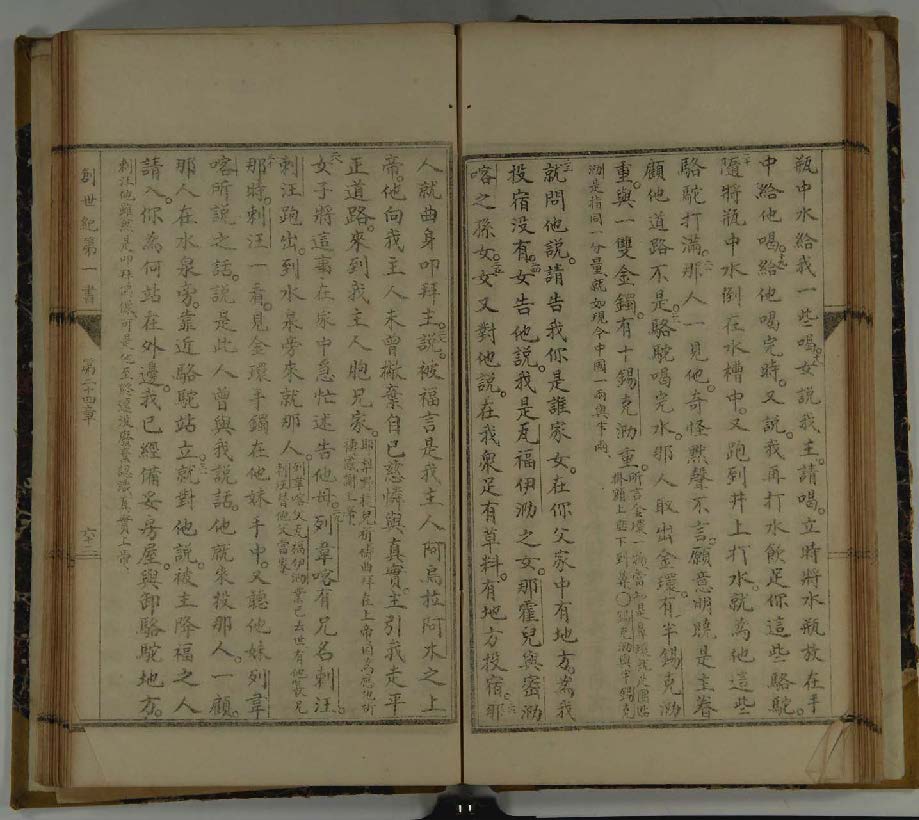 瓶中水給我一些喝女說我主請喝。立時將水瓶放在手
中給他喝。給他喝完時。又說我再打水飲足你這些駱駝。
隨將瓶中水倒在水槽中。又跑到井上打水。就為他這些
駱駝打滿。那人一見他。奇怪黙聲不言。願意明曉是主眷
顧他道路不是。駱駝喝完水。那人取出金環。有半錫克泐
重。與一雙金鐲。有十錫克泐重。
泐是指同一分量就如現今中國一兩與半兩
就問他說。請告我你是誰家女。在你父家中有地方為我
投宿沒有。女告他說。我是尾福伊泐之女。那霍兒與密泐
喀之孫女。女又對他說。在我泉足有草料。有地方投宿。那
人就曲身叩拜主。說被福言是我主人阿烏拉阿木之上
帝。他向我主人未曾撇棄自己慈憐與真實。主引我走平
正道路。來到我主人胞兄家。
女子將這事在家中急忙述告他母。列韋喀有兄名剌汪。
剌汪跑出。到水泉旁來就那人。
那時。剌汪一看。見金環手鐲在他妹手中。又聽他妹列韋
喀所說之話。說是此人曾與我說話。他就來投那人。一顧。
那人在水泉旁。靠近駱駝站立。就對他說。被主降福之人
請入。你為何站在外邊。我已經備妥房屋。與卸駱駝地方。
創世紀第一書
第二十四章
六十三